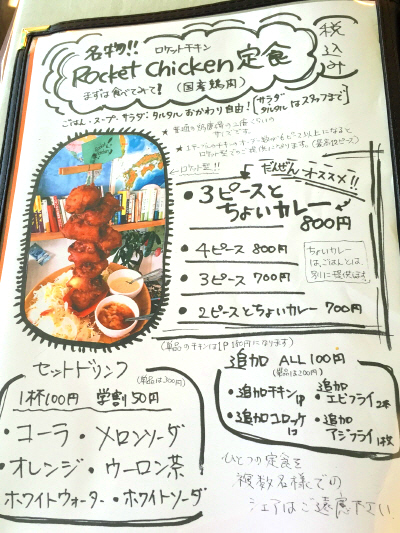 税込み
名物!! ロケットチキン
Rocket Chicken 定食
まずは食べてみて! (国産鶏肉)
ごはん・スープ・サラダ・タルタル おかわり自由! [サラダ タルタル はスタッフまで]
←ロケット型!!
だんぜんオススメ!!
・3ピースと
ちょいカレー
800円
・4ピース 800円
・3ピース 700円
・2ピースとちょいカレー 700円
ちょいカレー
は、ごはんとは、
別に提供します
(単品のチキンは1P 180円になります)
セットドリンク
(単品は200円)
1杯100円 学割50円
・コーラ ・メロンソーダ
・オレンジ ・ウーロン茶
ホワイトウォーター ・ホワイトソーダ
追加 ALL 100円
(単品は200円)
・追加チキン1P ・追加エビフライ2本
・追加コロッケ1コ ・追加アジフライ1枚
ひとつの定食を
複数名様での
シェアはご遠慮下さい